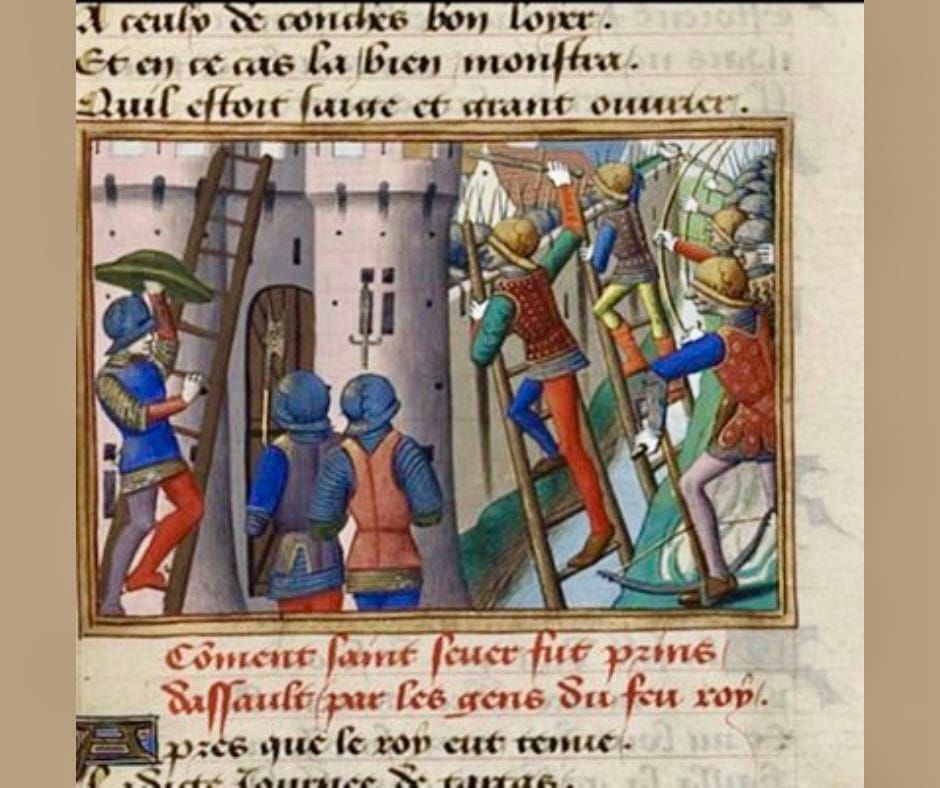 A ceulx de conches bon loyer.
Et en ce cas la bien monstra.
Quil estoit saige et grant ouurier.
Cōment saint seuer fut prins
dassault par les gens du feu roy.
Apres que le roy eut tenue.
La dicte Journee de tartas.